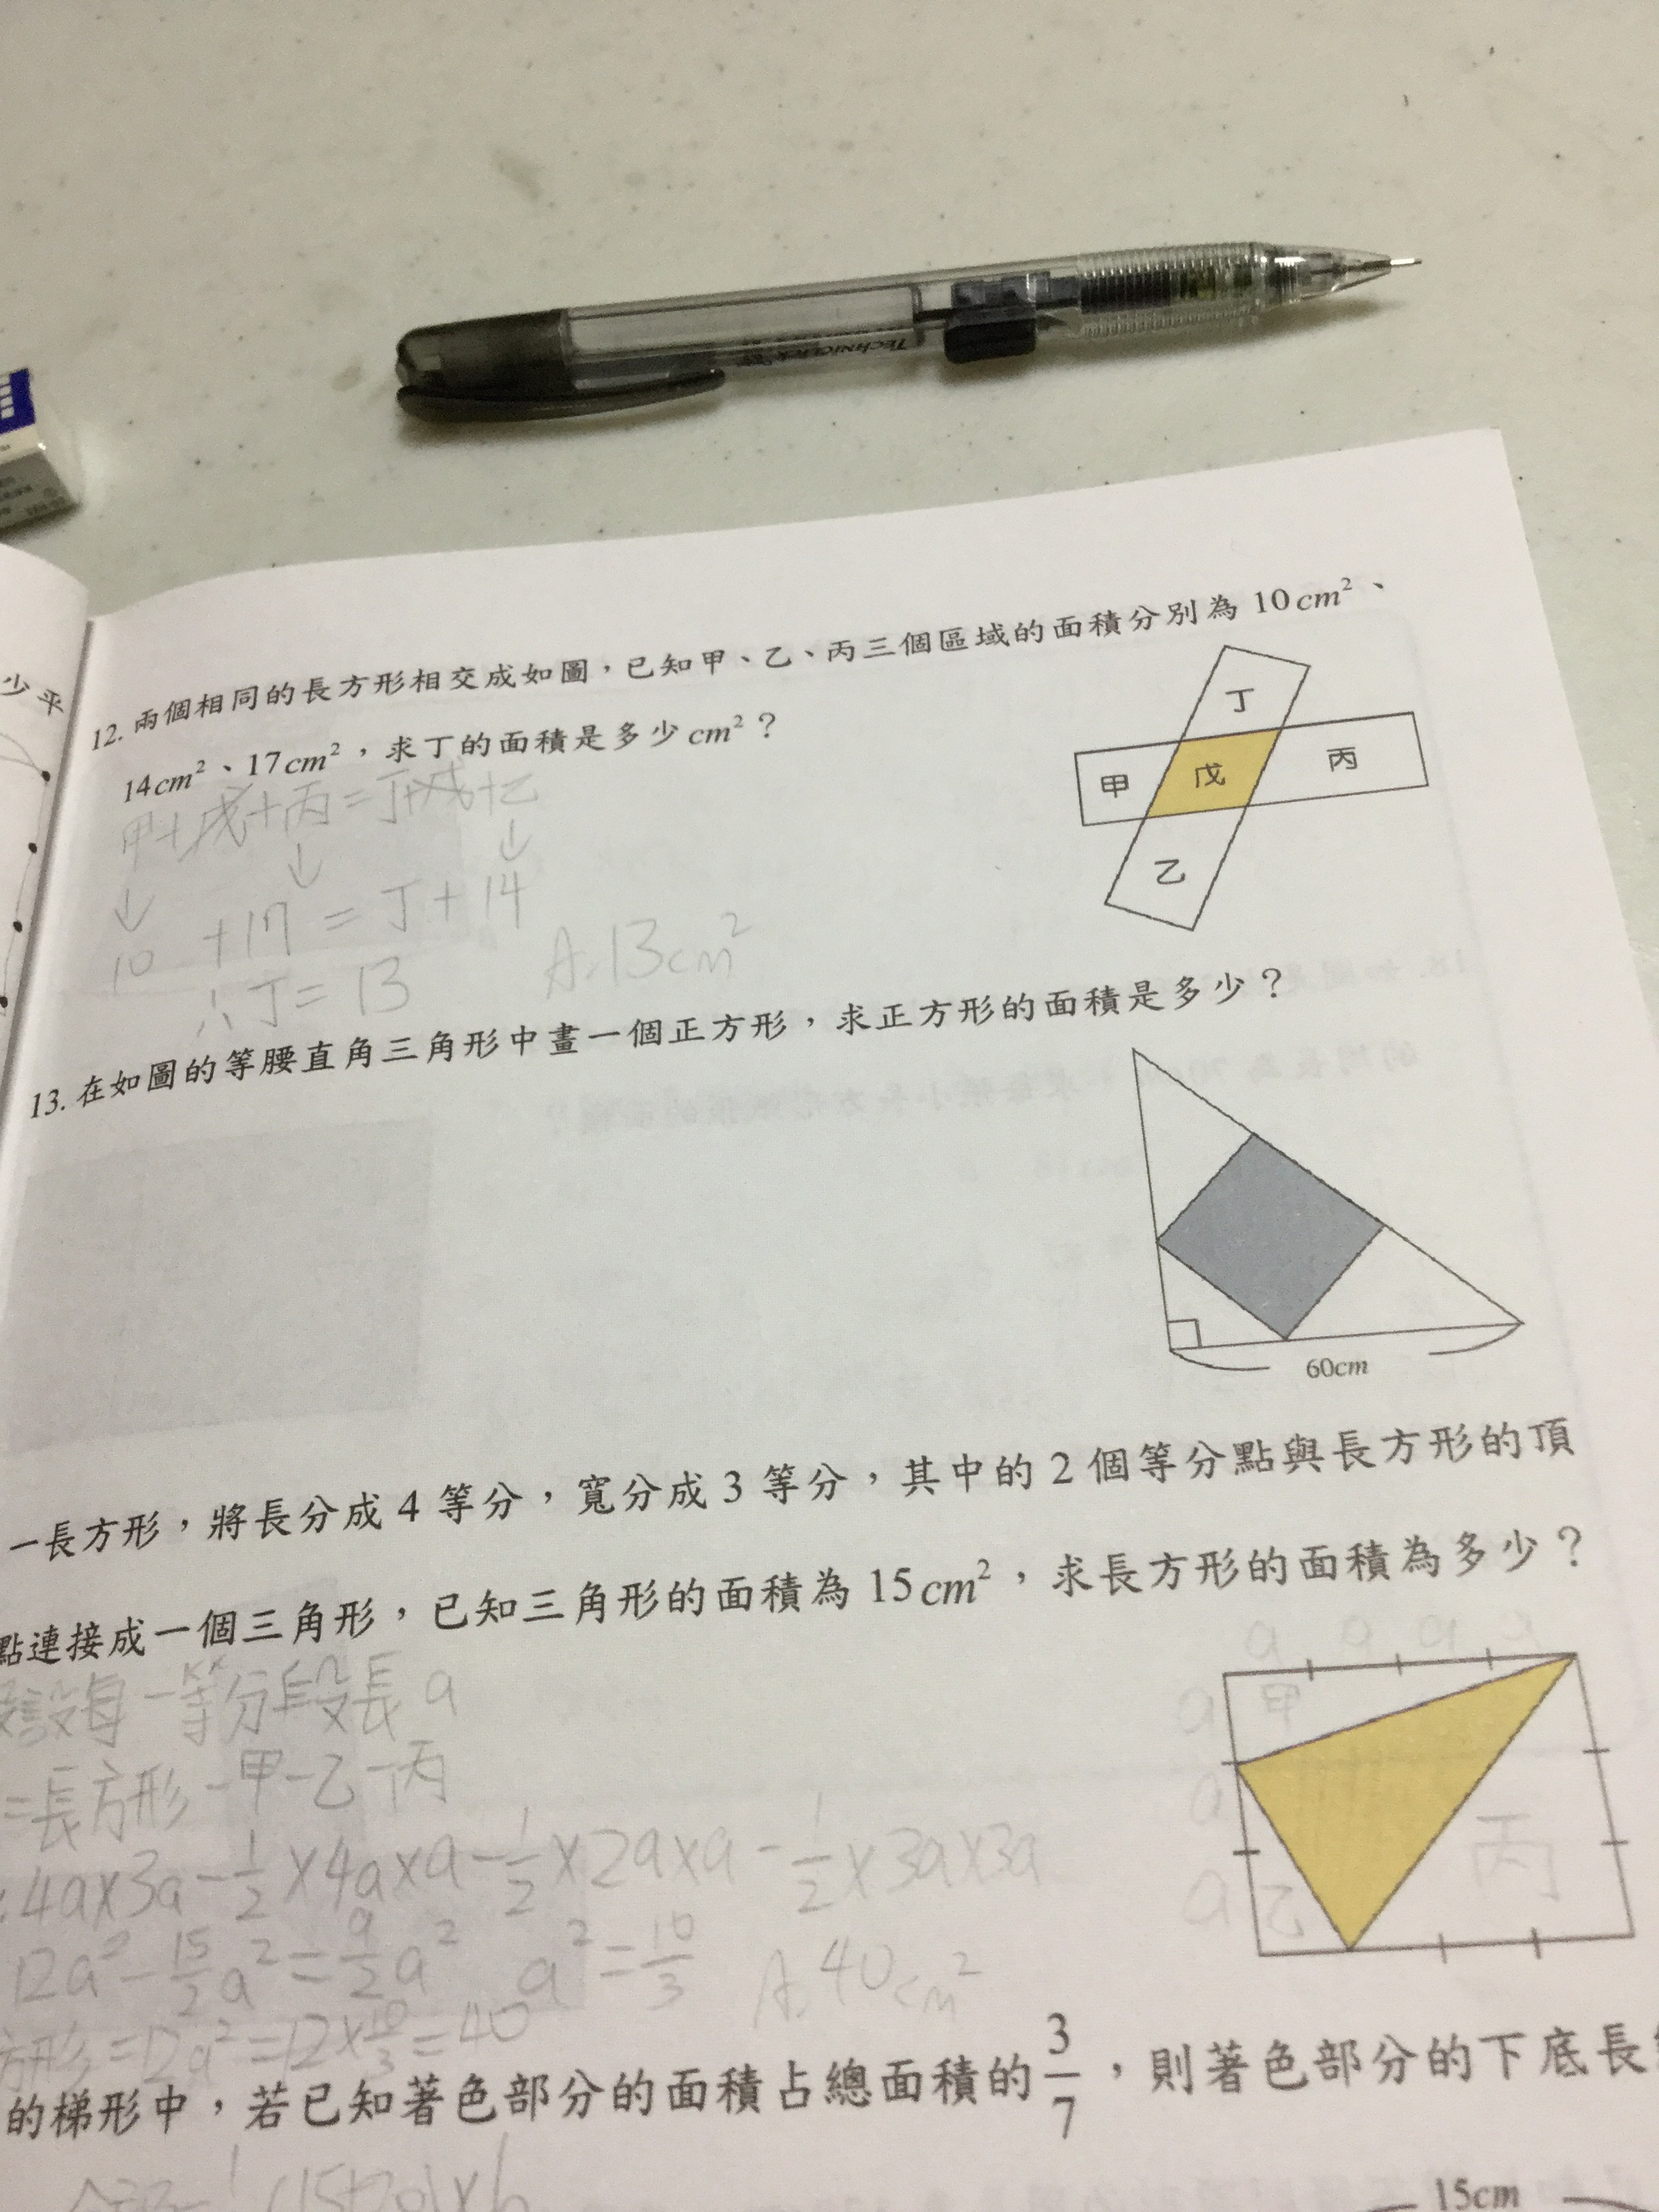 少平
12. 兩個相同的長方形相交成如圖，已知甲、乙、丙三個區域的面積分別為 10cm²、
14cm²、17cm²，求丁的面積是多少cm²？
丁
甲
戊
丙
乙
甲+戊+丙=丁+戊+乙
10 +17 = 丁+14
∴丁=13
A:13cm²
13. 在如圖的等腰直角三角形中畫一個正方形，求正方形的面積是多少？
60cm
一長方形，將長分成 4 等分，寬分成 3 等分，其中的 2 個等分點與長方形的頂
點連接成一個三角形，已知三角形的面積為 15cm²，求長方形的面積為多少？
設每一等分段長 a
=長方形-甲-乙-丙
4a×3a-1/2×4a×a-1/2×2a×a-1/2×3a×3a
12a²-15/2a²=9/2a² a²=10/3
A:40cm²
方形=12a²=12×10/3=40
a a a a
a 甲
a
a 乙
丙
的梯形中，若已知著色部分的面積占總面積的3/7，則著色部分的下底長
15cm